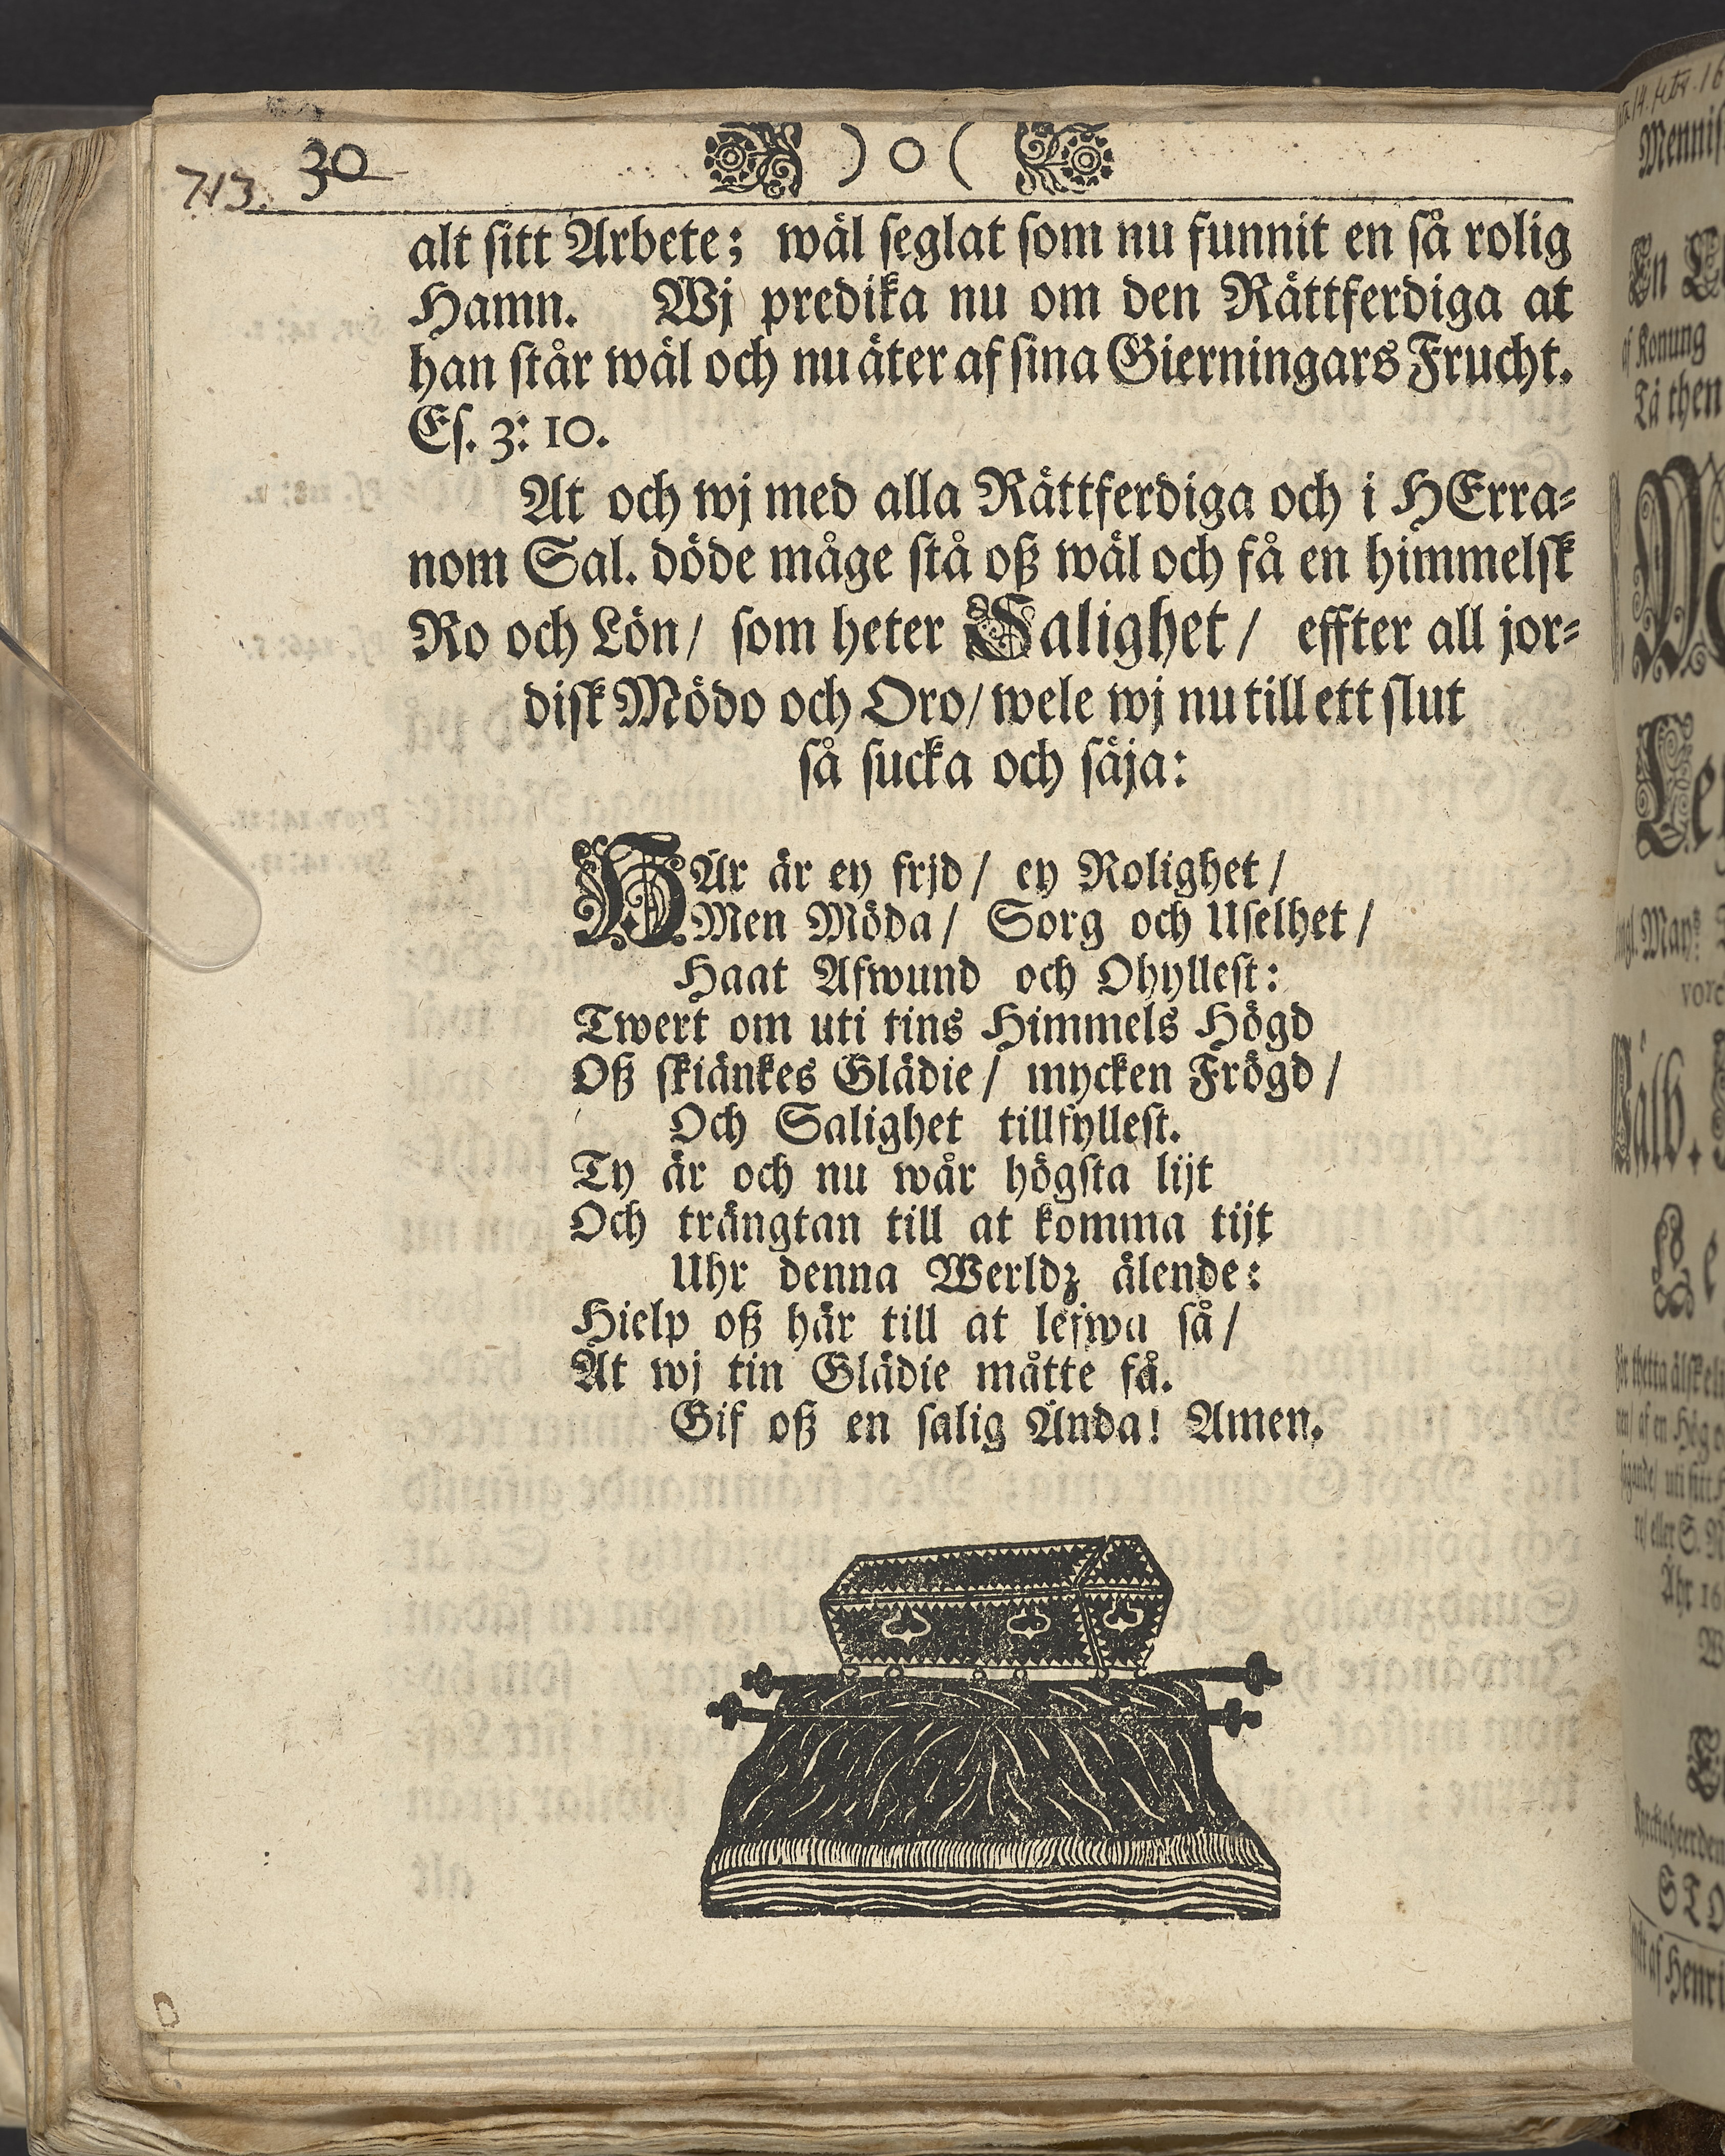 713. 30 ) o (
alt sitt Arbete; wäl seglat som nu funnit en så rolig
Hamn. Wj predika nu om den Rättferdiga at
han står wäl och nu äter af sina Gierningars Frucht.
Es. 3: 10.
At och wj med alla Rättferdiga och i HErra-
nom Sal. döde måge stå oß wäl och få en himmelsk
Ro och Lön/ som heter Salighet/ effter all jor-
disk Mödo och Oro/ wele wj nu till ett slut
så sucka och säja:
HÄr är ey frjd/ ey Rolighet/
Men Möda/ Sorg och Uselhet/
Haat Afwund och Ohyllest:
Twert om uti tins Himmels Högd
Oß skiänkes Glädie/ mycken Frögd/
Och Salighet tillfyllest.
Ty är och nu wår högsta lijt
Och trängtan till at komma tijt
Uhr denna Werldz älende:
Hielp oß här till at lefwa så/
At wj tin Glädie måtte få.
Gif oß en salig Ända! Amen.
Mennis
En
af Konung
Tå then
vor
Åhr 16
af Henri